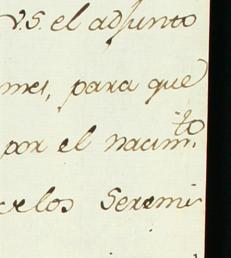 V.S. el adjunto
mes, para que
por el nacim.to
los Sereni